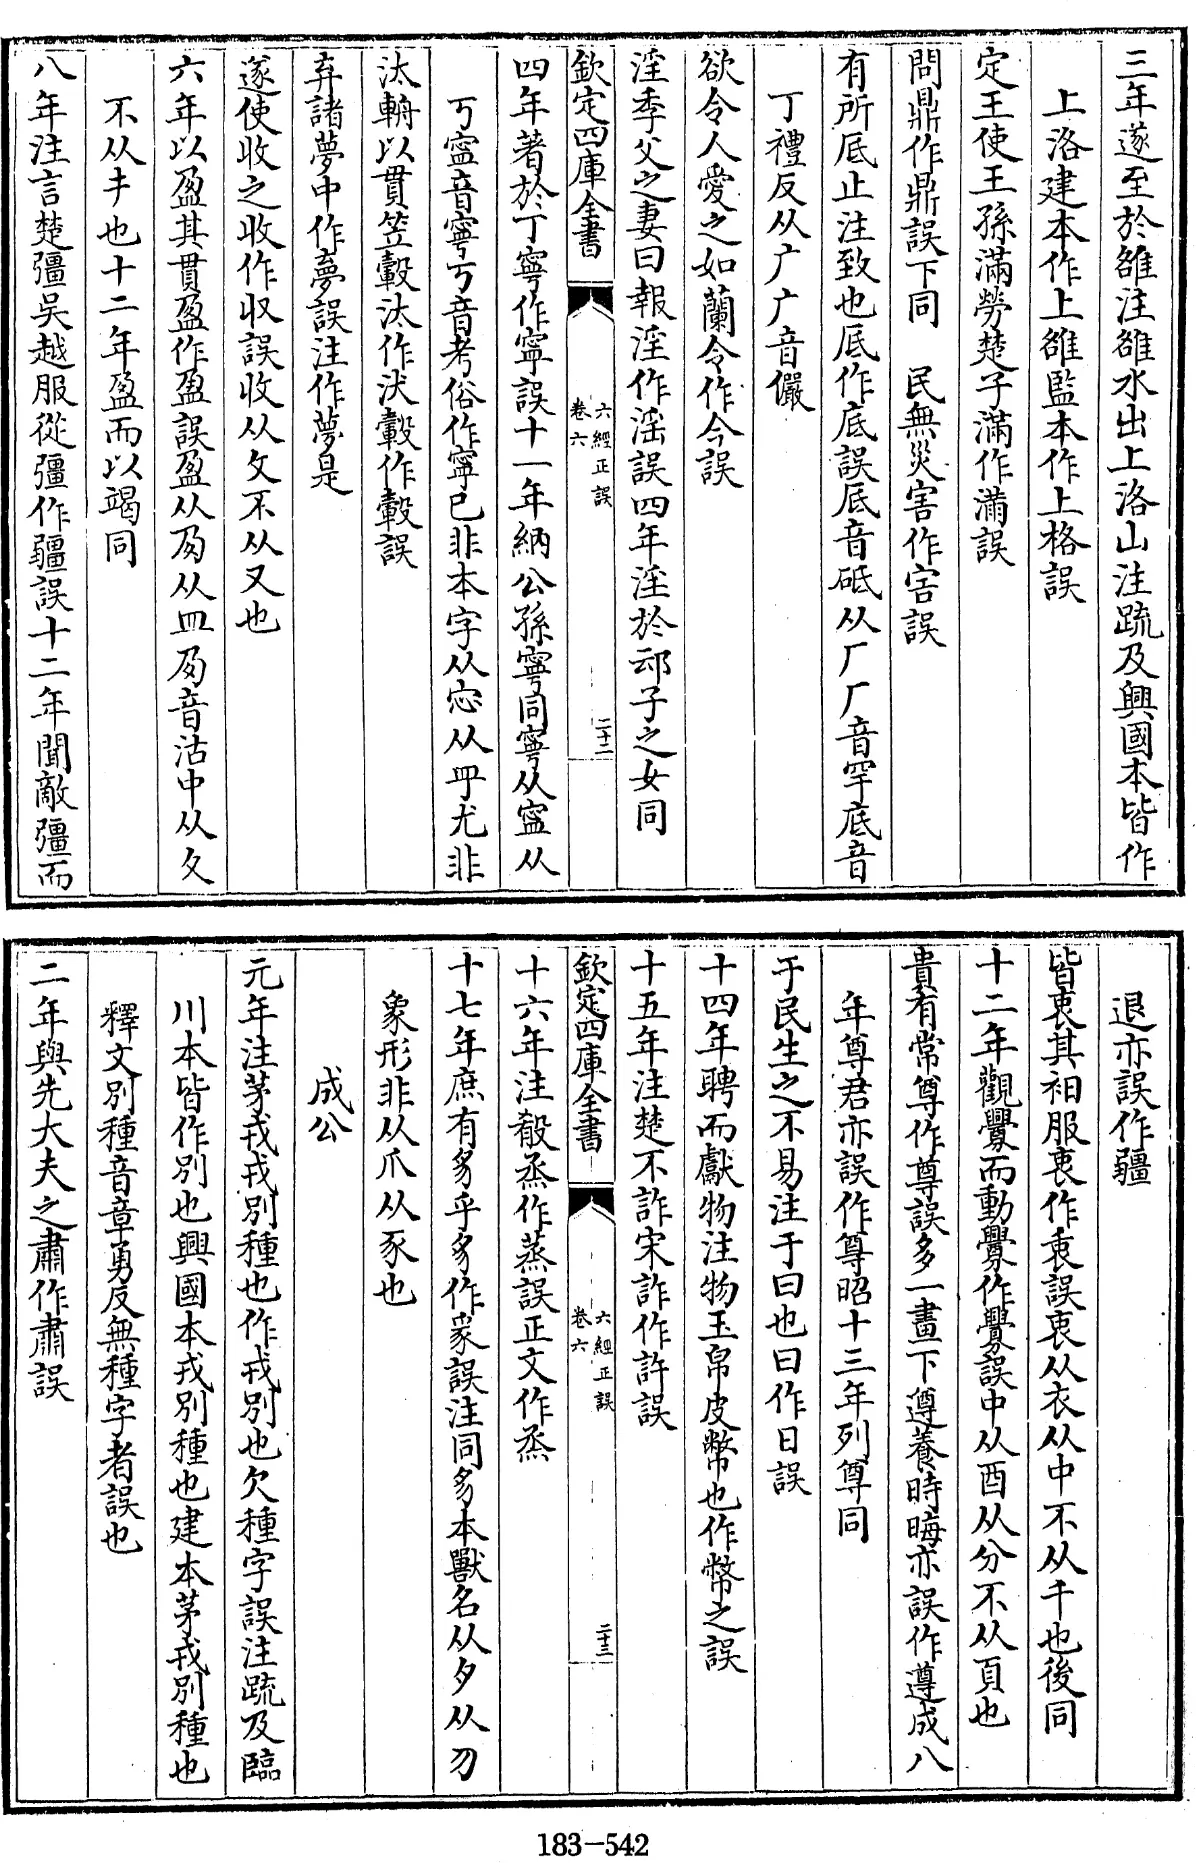 三年遂至於雒注雒水出上洛山注疏及興國本皆作
上洛建本作上雒監本作上格誤
定王使王孫滿勞楚子滿作滿誤
問鼎作鼎誤下同 民無災害作害誤
有所厎止注致也厎作底誤厎音砥从厂厂音罕底音
丁禮反从广广音儼
欲令人愛之如蘭令作今誤
淫季父之妻曰報淫作滛誤四年淫於䢵子之女同
欽定四庫全書
六經正誤
卷六
二十二
四年著於丁寧作寜誤十一年納公孫寧同寧从寍从
丂寍音寧丂音考俗作寧已非本字从寍从甼尤非
汰輈以貫笠轂汰作汏轂作轂誤
弃諸夢中作夣誤注作夢是
遂使收之收作収誤收从攵不从又也
六年以盈其貫盈作盈誤盈从夃从皿夃音沽中从夂
不从㐄也十二年盈而以竭同
八年注言楚彊吳越服從彊作疆誤十二年聞敵彊而
退亦誤作疆
皆衷其衵服衷作衷誤衷从衣从中不从千也後同
十二年觀釁而動釁作釁誤中从酉从分不从頁也
貴有常尊作尊誤多一畫下遵養時晦亦誤作遵成八
年尊君亦誤作尊昭十三年列尊同
于民生之不易注于曰也曰作日誤
十四年聘而獻物注物玉帛皮幣也作幣之誤
十五年注楚不詐宋詐作許誤
欽定四庫全書
六經正誤
卷六
二十三
十六年注殽烝作蒸誤正文作烝
十七年庶有豸乎豸作豸誤注同豸本獸名从夕从勿
象形非从爪从豕也
成公
元年注茅戎戎別種也作戎別也欠種字誤注疏及臨
川本皆作別也興國本戎別種也建本茅戎別種也
釋文別種音章勇反無種字者誤也
二年與先大夫之肅作肅誤
183-542